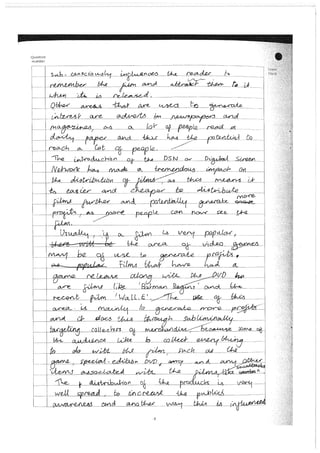 Question
number
Leave
blank
sub-consciously influences the reader to
remember the film and attract them to it
when it is released.
Other areas that are used to generate
interest are adverts in newspapers and
magazines, as a lot of people read a
daily paper and this has the potential to
reach a lot of people.
The introduction of the DSN or Digital Screen
Network has made a tremendous impact on
the distribution of films as this means it
is easier and cheaper to distribute
films further and potentially generate more
profits, as more people can now see the
film.
Usually, if a film is very popular,
there will be the area of video games
may be of use to generate profits.
Films that have had a
game release along with the DVD
are films like 'Batman Begins' and the
recent film 'Wall.E'. The use of this
area is mainly to generate more profits
and it does this through subliminally
targeting collectors of merchandise because some of
the audience like to collect everything
to do with the film, such as the
game, special-edition DVD, and any other
items associated with the films, like
The distribution of the products is very
well spread, to increase the public's
awareness and another way this is influenced